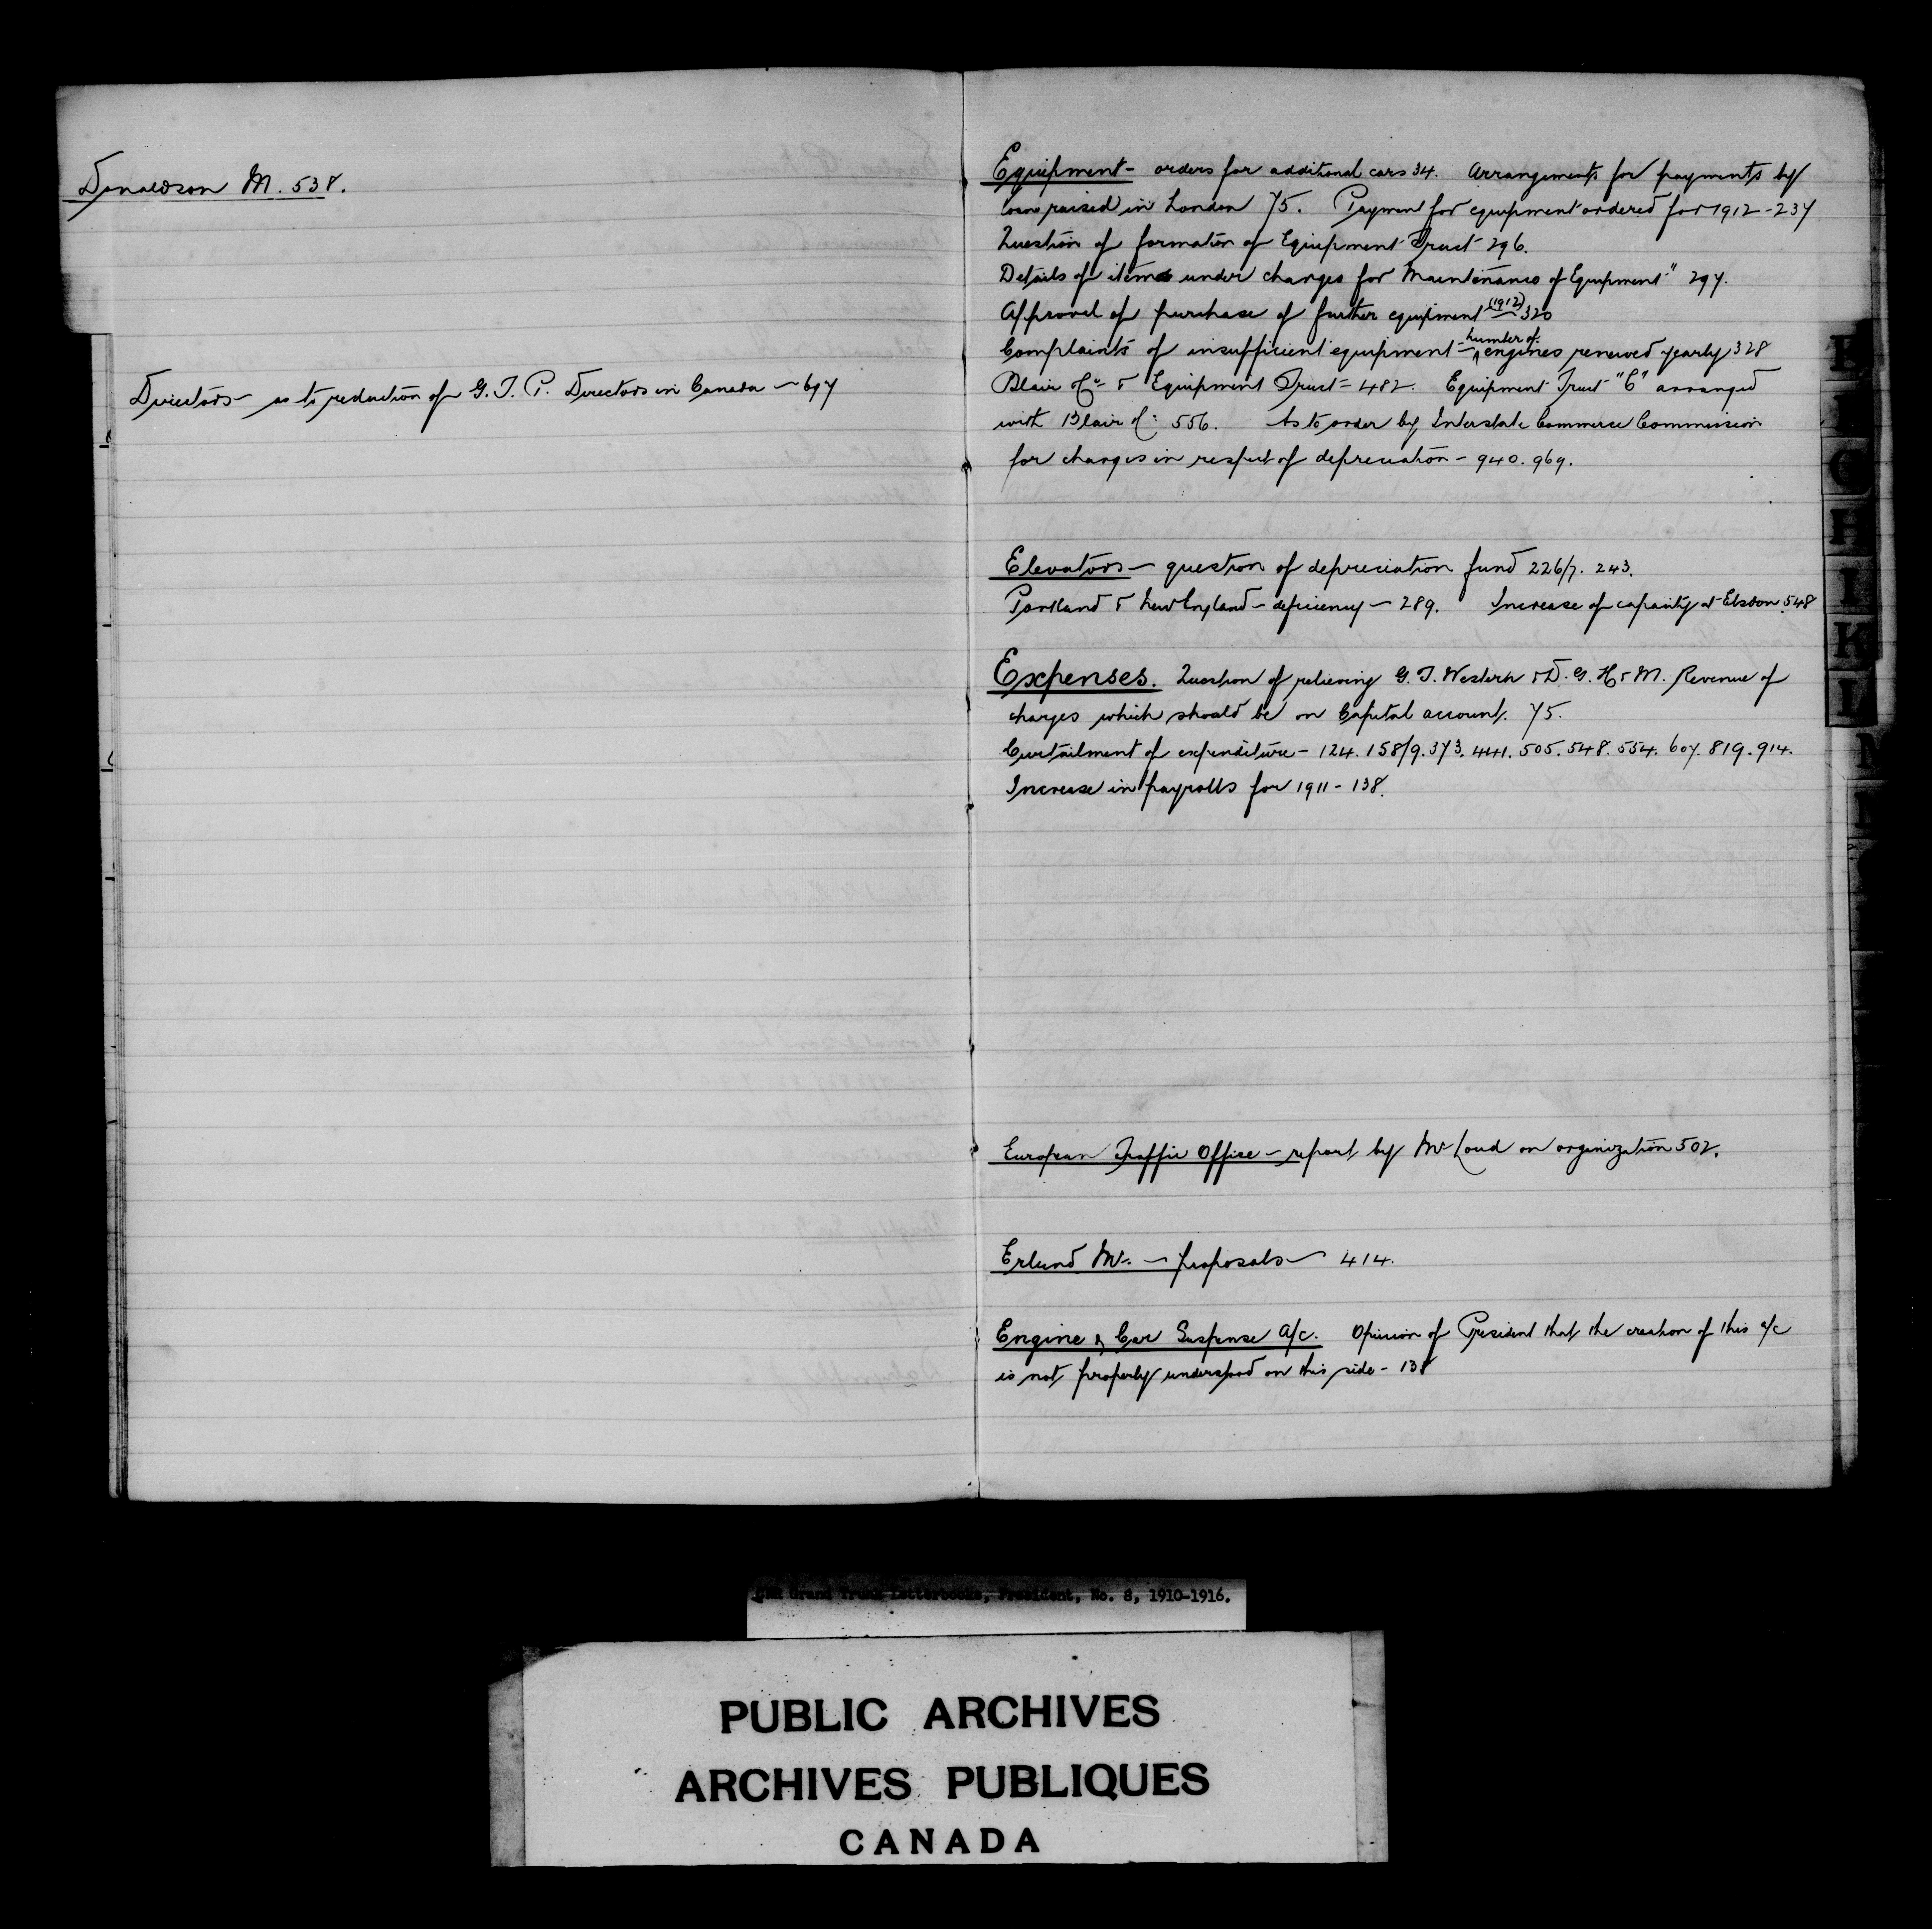 Donaldson M. 538.
Directors – as to reduction of G. T. P. Directors in Canada – 697
Equipment – orders for additional cars 34. Arrangements for payments by
loans raised in London 75. Payment for equipment ordered for 1912 – 237
Question of formation of Equipment Trust 296.
Details of items under charges for Maintenance of Equipment" 297.
Approval of purchase of further equipment (1912) – 320
Complaints of insufficient equipment – number of engines renewed yearly 328
Blair & Co & Equipment Trust – 482. Equipment Trust "C" arranged
with Blair & Co: 556. As to order by Interstate Commerce Commission
for charges in respect of depreciation – 940. 969.
Elevators – question of depreciation fund 226/7. 243.
Portland & New England – deficiency – 289. Increase of capacity at Elsdon 548
Expenses. Question of relieving G. T. Western & D. G. H & M. Revenue of
charges which should be on Capital account. 75.
Curtailment of expenditure – 124. 158/9. 373. 441. 505. 548. 554. 607. 819. 914.
Increase in payrolls for 1911 – 138.
European Traffic Office – report by Mr Loud on organization 502.
Erlund Mr. – proposals – 414.
Engine & Car Suspense A/c. Opinion of President that the creation of this a/c
is not properly understood on this side – 138
H
I
K
L
M
Grand Trunk Letterbooks, President, No. 8, 1910-1916.
PUBLIC ARCHIVES
ARCHIVES PUBLIQUES
CANADA